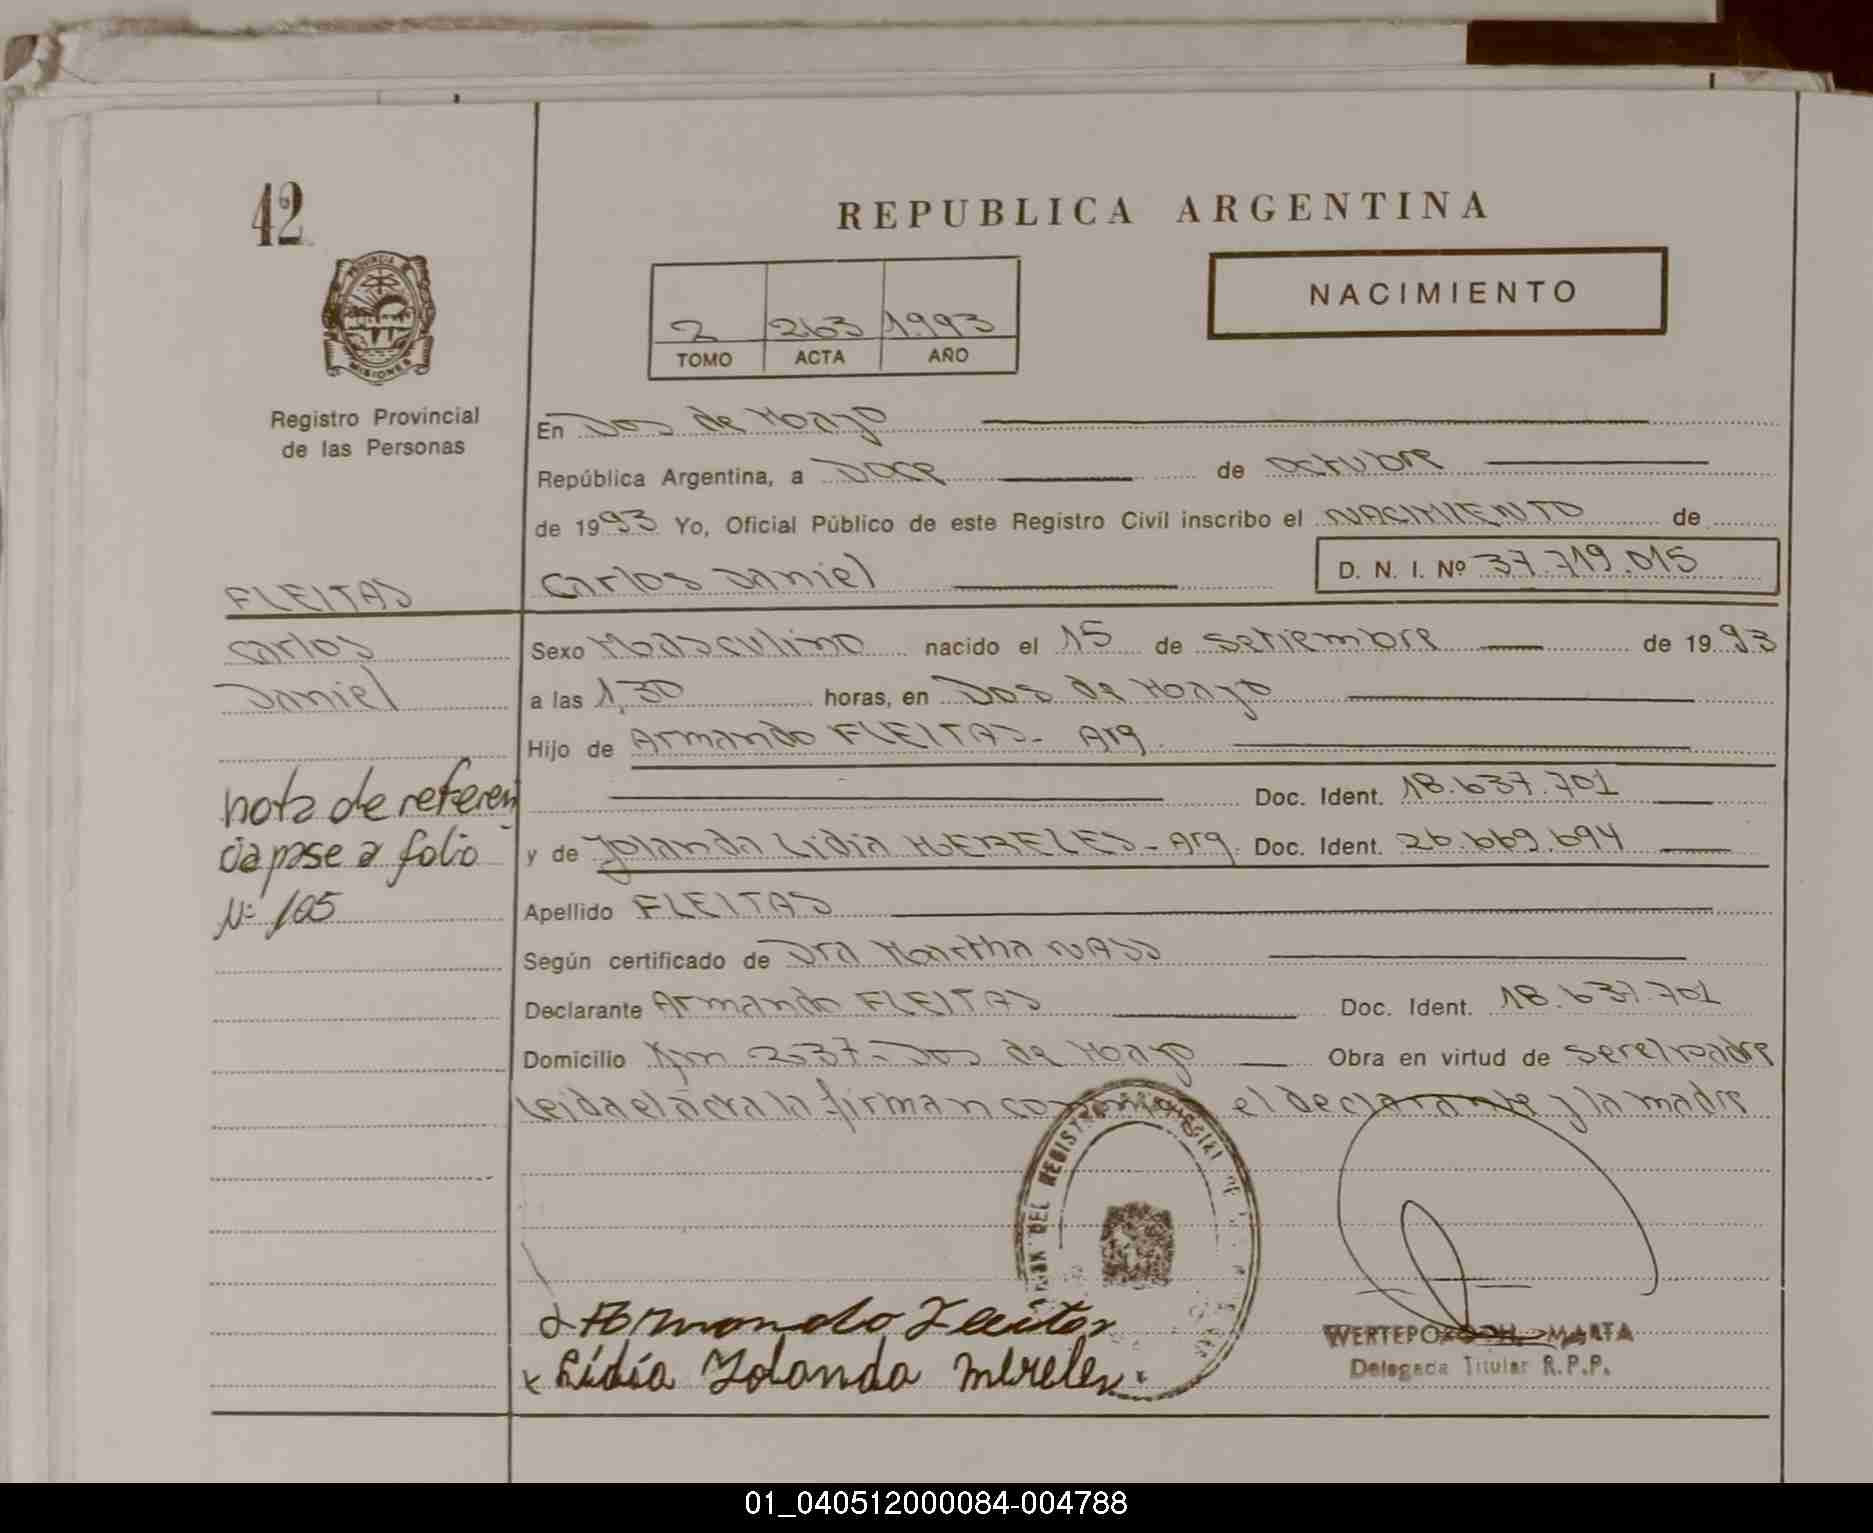 42
PROVINCIA DE
MISIONES
Registro Provincial
de las Personas
FLEITAS
Carlos
Daniel
nota de referen
cia pase a folio
Nº 105
REPUBLICA ARGENTINA
NACIMIENTO
2 263 1993
TOMO ACTA AÑO
En Dos de Mayo
República Argentina, a Doce de octubre
de 1993 Yo, Oficial Público de este Registro Civil inscribo el NACIMIENTO de
Carlos Daniel D. N. I. Nº 37.719.015
Sexo Masculino nacido el 15 de setiembre de 1993
a las 1,30 horas, en Dos de Mayo
Hijo de Armando FLEITAS - Arg.
Doc. Ident. 18.637.701
y de Yolanda Lidia MERELES - Arg. Doc. Ident. 26.669.694
Apellido FLEITAS
Según certificado de Dra Martha NASS
Declarante Armando FLEITAS Doc. Ident. 18.637.701
Domicilio Km 237 - Dos de Mayo Obra en virtud de ser el padre
Leida el acta la firman el declarante y la madre
DEL REGISTRO PROVINCIAL DE
Armando Fleitas
Lidia Yolanda Mereles
MARTA
Delegada Titular R.P.P.
01_040512000084-004788